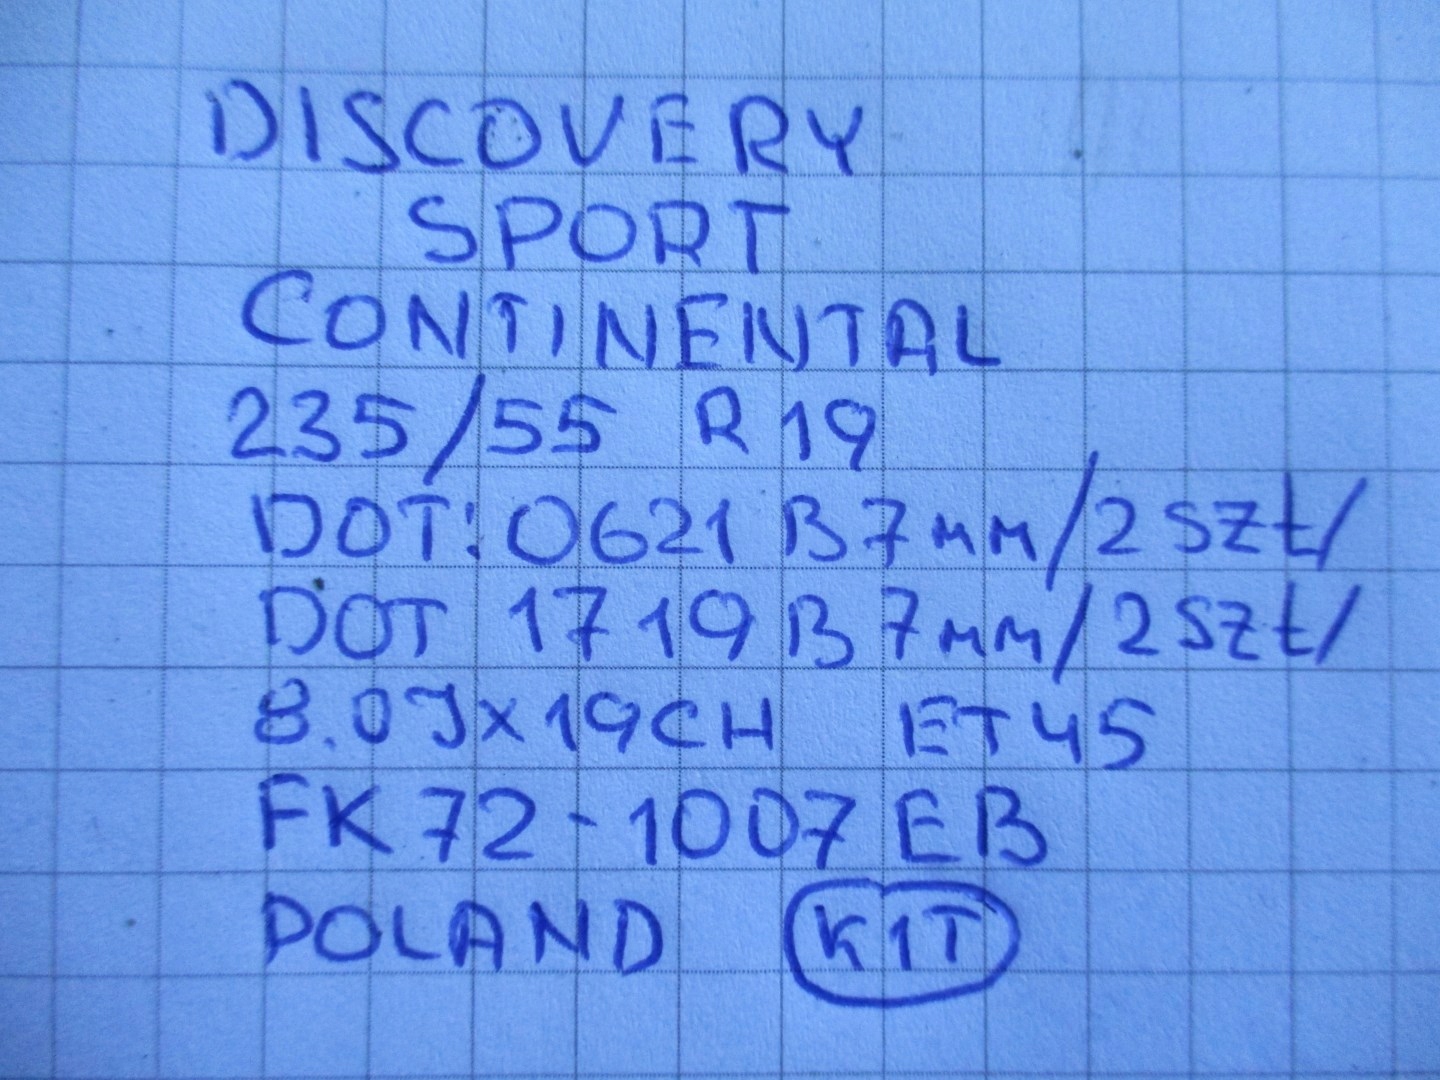 DISCOVERY
SPORT
CONTINENTAL
235/55 R19
DOT: 0621 B 7mm/2szt/
DOT 1719 B 7mm/2szt/
8.0Jx19CH ET45
FK72-1007EB
POLAND K1T